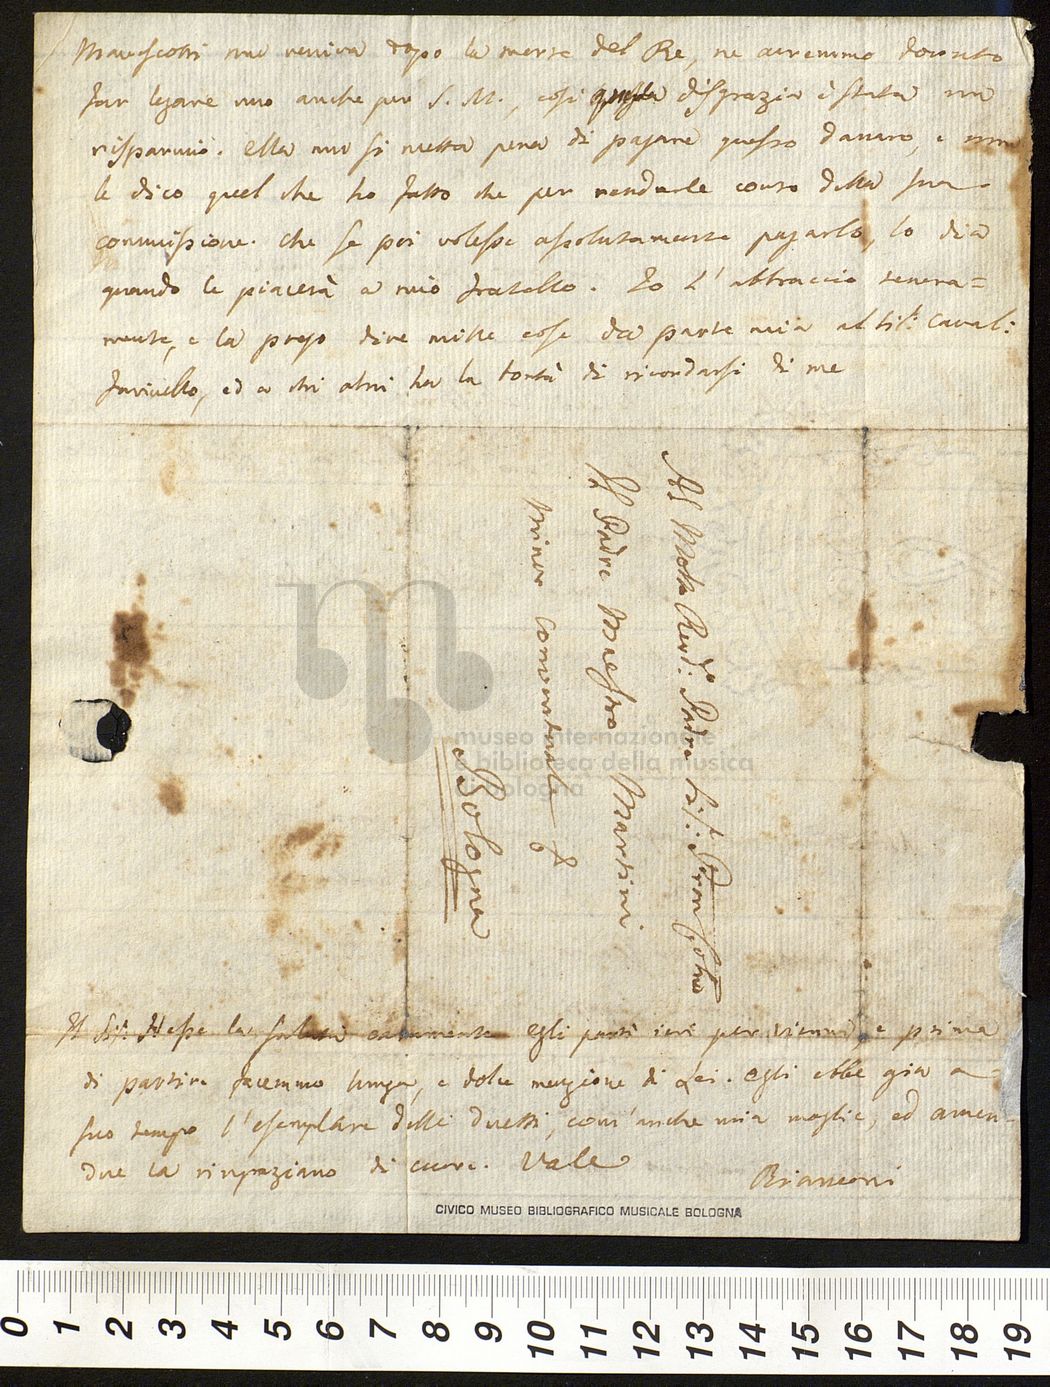 Marescotti mi veniva dopo la morte del Re, ne avremmo dovuto
far legare uno anche per S. M., così questa disgrazia è stata un
risparmio. Ella non si metta pena di pagare questo danaro, e non
le dico quel che ho fatto che per renderle conto della sua
commissione. Che se poi volesse assolutamente pagarlo, lo dia
quando le piacerà a mio fratello. Io L'abbraccio tenera=
mente, e la prego dire mille cose da parte mia al Sig.r Caval.r
ed a chi altri ha la bontà di ricordarsi di me
Al Molto Rev.do Padre Sig.r Pron Col.mo
Il Padre Maestro Martini
Minor Conventuale
Bologna
Il Sig.r Hesse la saluta caramente egli partì ieri per Vienna e prima
di partire facemmo lunga, e dolce menzione di Lei. Egli ebbe già a
suo tempo l'esemplare delli Duetti, com'anche mia moglie, ed amen-
due la ringraziano di cuore. Vale
Bianconi
CIVICO MUSEO BIBLIOGRAFICO MUSICALE BOLOGNA
museo internazionale
e biblioteca della musica
di bologna
0 1 2 3 4 5 6 7 8 9 10 11 12 13 14 15 16 17 18 19